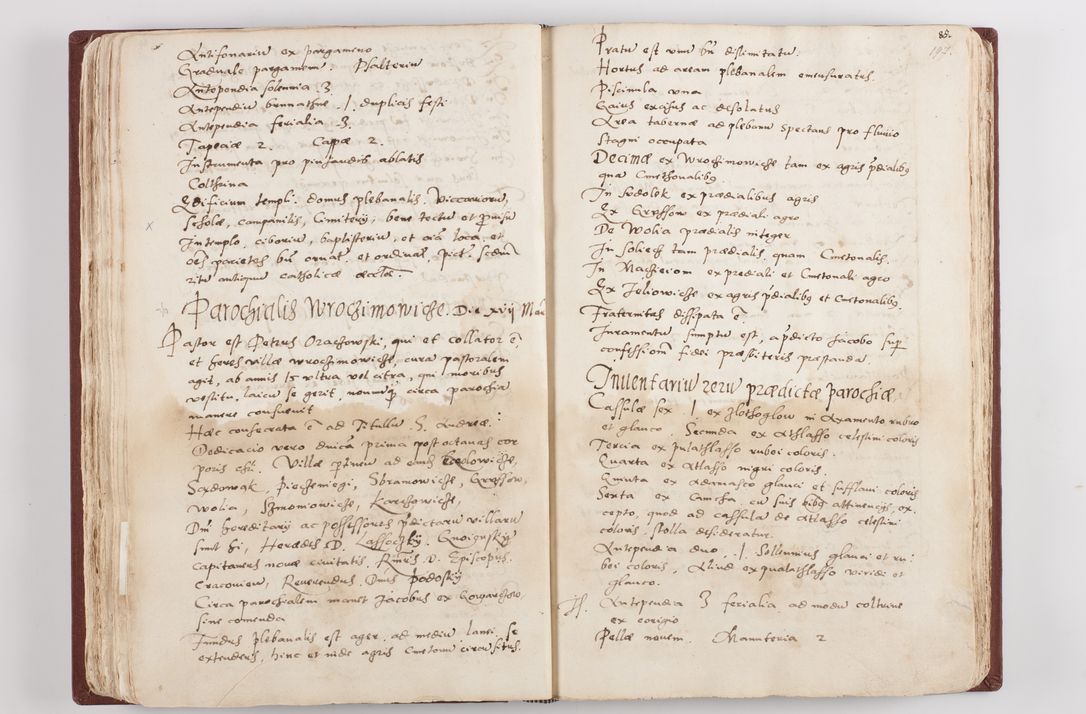 Antifonariu ex pargameno
Graduale pargamenu. Psalteriu
Antependia solemnia 3.
Antependiu brunathne ./. duplicis festi
Antependia ferialia 3.
Tapecia 2. Cappæ 2.
Instrumenta pro pingendis ablatis
Colthrina
Edificium templi. domus plebanalis, Viccarioru,
Scholæ, campanilis, Cimiterij, bene tectu et
In templo, ciboriu, baptisteriu, et oia loca, et
oes parietes bn ornat. et ordinat, pict. Scdm
ritu antiquu catholicæ
Parochialis Wrocimowicze. Die xvij Maij
Pastor est Petrus Orachowski, qui et Collator e
et heres villæ wrocimowicze, cura pastoralem
agit, ab annis 15 vltra vel citra, qui moribus
vestitu, laicu se gerit, circa parochia
manere consueuit
Hæc consecrata e ad Titullu S. Andreæ.
Dedicacio vero dnica prima post octauas cor
poris chri. Villæ ptinen ad eius
Sczdowak, Piechmiegi, Sbramowicze, Grzssow,
Wolia, Szmoniowicze, Karczowicze,
Dni hereditarij ac possessores pdictaru villaru
sunt hi, Heredes D. Lassoczkij Gnoiynskij
Capitaneus nouæ ciuitatis, Rmus D. Episcopus
Cracouien, Reuerendus Dnus Padoskij
Circa parochialem manet Jacobus ex
sine comenda
Fundus Plebanalis est ager, ad mediu lanei se
extendens, hinc et inde agris Cmetonu circu situs.
85.
197.
Pratu est vnu bn dislimitatu
Hortus ad aream plebanalem emensuratus
Piscinula vna
Gaius excisus ac desolatus
Area tabernæ ad plebanu spectans pro fluuio
stagni occupata
Decimæ ex Wrocimowicze tam ex agris pdialibus
qua Cmethonalibus
In Sedolek ex prædialibus agris
Ex Grzssow ex prædiali agro
De Wolia prædialis integer
In Soliech tam prædialis, quam Cmetonalis.
In Macheiom ex prædiali et Cmetonali agro
Ex Jeliowicze ex agris pdialibus et Cmetonalibus
Fraternitas dissipata e
Juramentu sumptu est, a pdicto Jacobo sup
confession fidei præsbiteris præstanda
Inuentariu reru prædictæ parochiæ
Cassulæ sex ./. ex zlothoglow in Axamento rubro
et glauco. Secunda ex Athlasso celestini coloris
Tercia ex pulathlasso rubei coloris.
Quarta ex Atlasso nigri coloris.
Quinta ex Adamasco glauci et sufflaui coloris
Sexta ex Camcha, cu suis oibus attinencijs, ex
cepto, quod ad cassula de Atlasso celestini
coloris, stolla desideratur.
Antependia duo ./. Sollennius glauci et ru
bei coloris, Aliud ex pualathlasso viridi et
glauco.
It. Antependia 3 ferialia ad modu coltrine
ex
Pellæ nouem. Manuteria 2